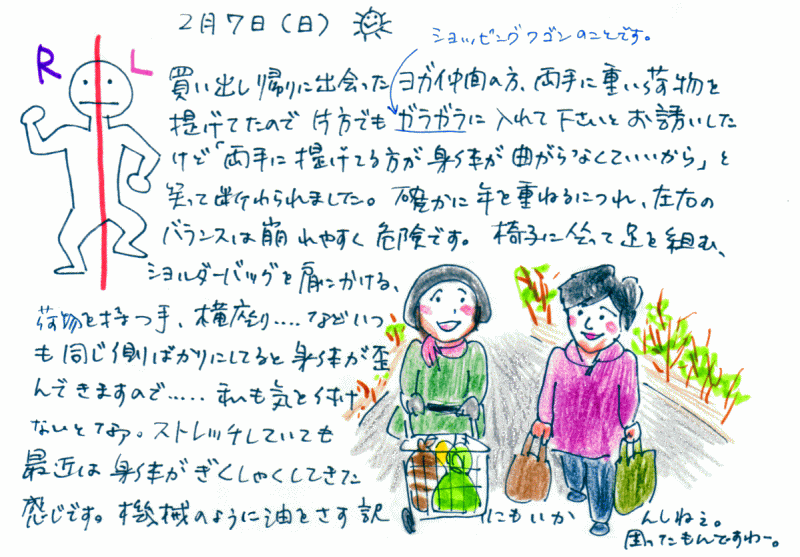 2月7日(日)
ショッピングワゴンのことです。
R L
買い出し帰りに出会ったヨガ仲間の方、両手に重い荷物を
提げてたので片方でもガラガラに入れて下さいとお誘いした
けど「両手に提げてる方が身体が曲がらなくていいから」と
笑って断わられました。確かに年を重ねるにつれ、左右の
バランスは崩れやすく危険です。椅子に坐って足を組む、
ショルダーバッグを肩にかける、
荷物を持つ手、横座り.....などいつ
も同じ側ばかりにしてると身体が歪
んできますので.....私も気を付け
ないとなァ。ストレッチしていても
最近は身体がぎくしゃくしてきた
感じです。機械のように油をさす訳にもいかんしねぇ。
困ったもんですわー。